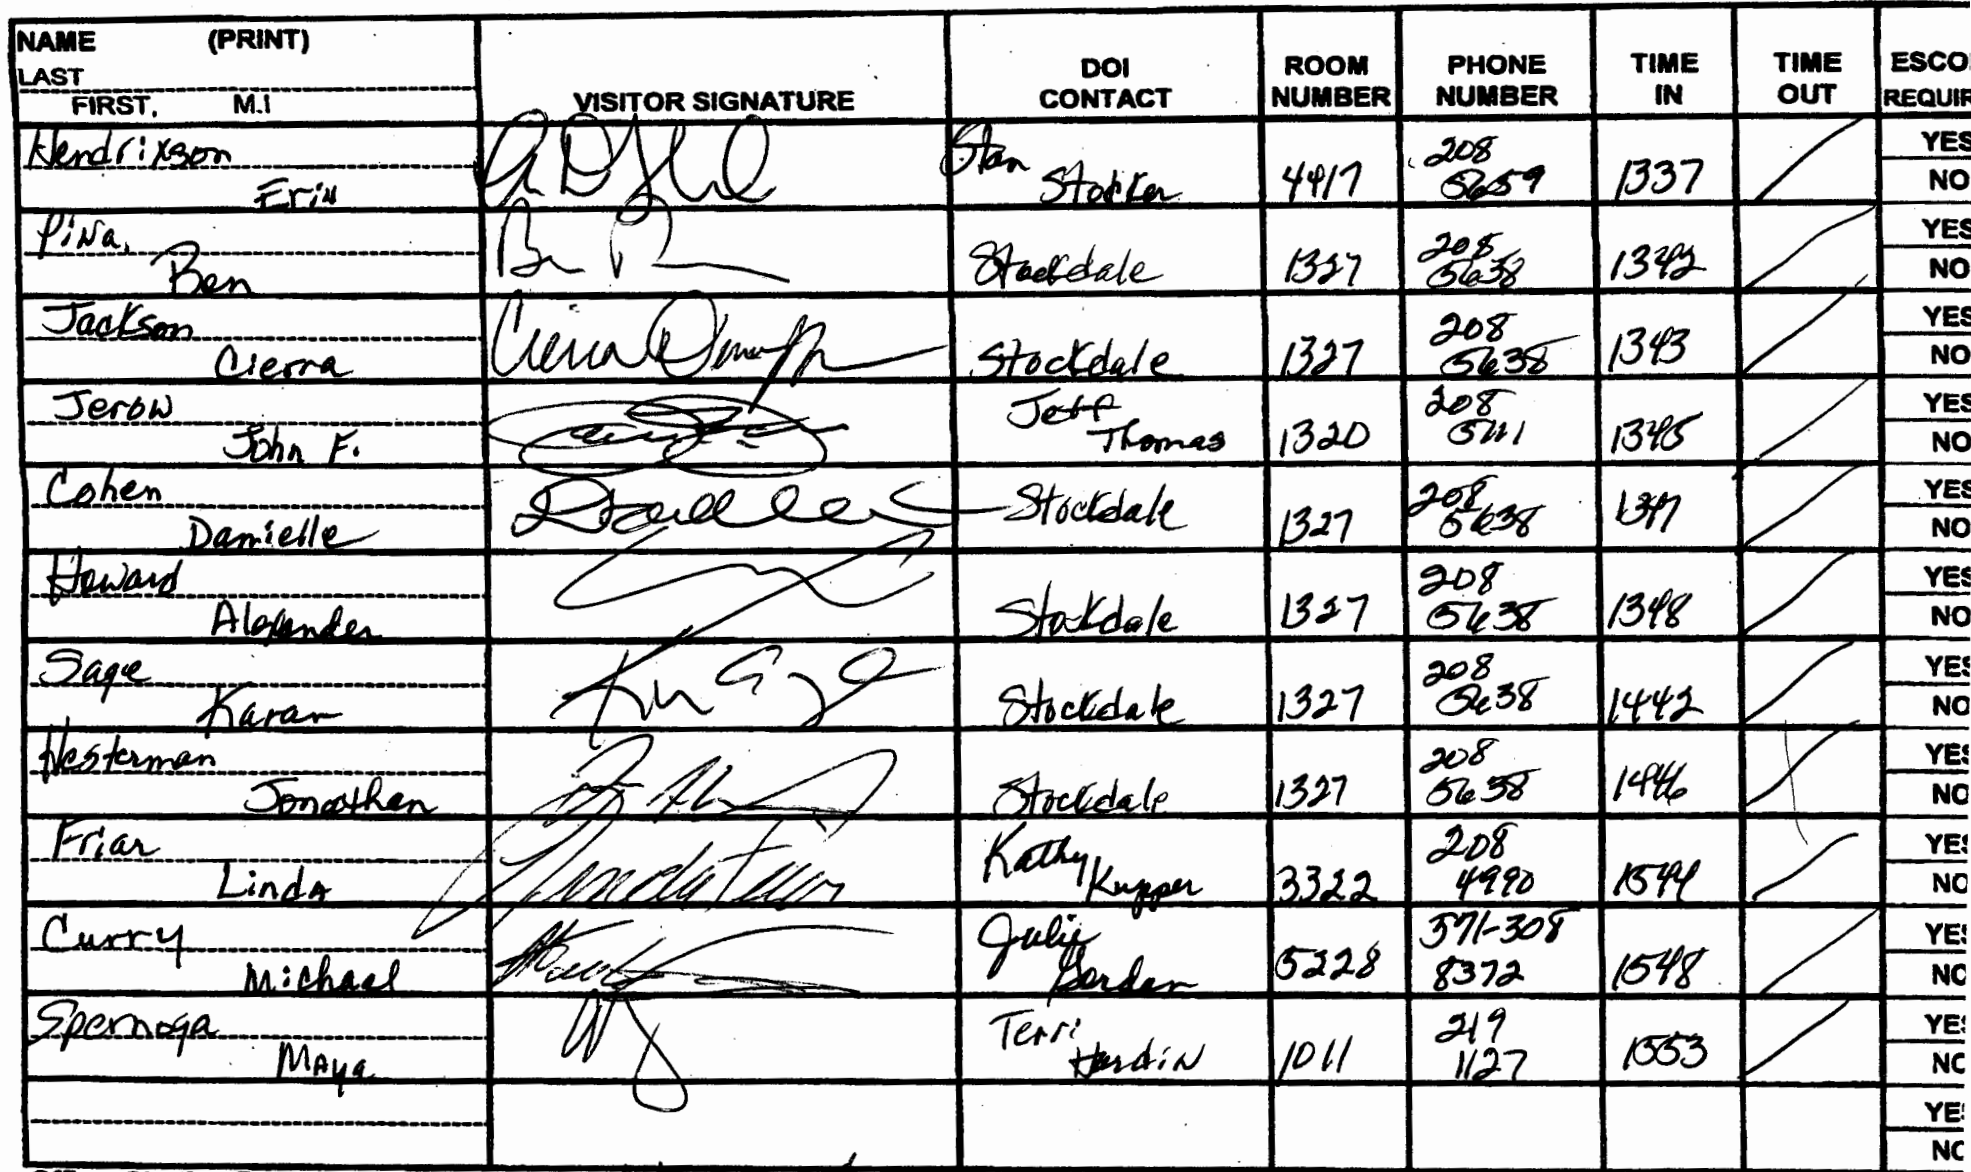 NAME (PRINT)
LAST
FIRST, M.I
VISITOR SIGNATURE
DOI CONTACT
ROOM NUMBER
PHONE NUMBER
TIME IN
TIME OUT
ESCO
REQUIR
Hendrixson
Erin
Stan
Stocker
4417
208
5659
1337
YES
NO
Piña,
Ben
Stockdale
1327
208
5638
1342
YES
NO
Jackson
Cierra
Stockdale
1327
208
5638
1343
YES
NO
Jerow
John F.
Jeff
Thomas
1320
208
5111
1345
YES
NO
Cohen
Danielle
Stockdale
1327
208
5638
1347
YES
NO
Howard
Alexander
Stockdale
1327
208
5638
1348
YES
NO
Sage
Karan
Stockdale
1327
208
5638
1442
YES
NO
Hesterman
Jonathan
Stockdale
1327
208
5638
1446
YES
NO
Friar
Linda
Kathy
Kupper
3322
208
4990
1544
YES
NO
Curry
Michael
Julie
5228
571-308
8372
1548
YES
NO
Spernoga
Maya
Terri
Hardin
1011
219
1127
1553
YES
NO
YES
NO